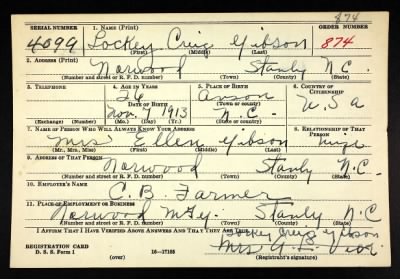 874
SERIAL NUMBER 1. NAME (Print) ORDER NUMBER
4099 Lockey Craig Gibson 874
(First) (Middle) (Last)
2. ADDRESS (Print)
Norwood Stanly N.C.
(Number and street or R. F. D. number) (Town) (County) (State)
3. TELEPHONE 4. AGE IN YEARS 5. PLACE OF BIRTH 6. COUNTRY OF CITIZENSHIP
26 Anson
DATE OF BIRTH (Town or county)
Nov. 7 1913 N.C. U.S.A
(Exchange) (Number) (Mo.) (Day) (Yr.) (State or country)
7. NAME OF PERSON WHO WILL ALWAYS KNOW YOUR ADDRESS 8. RELATIONSHIP OF THAT PERSON
Mrs Ellen Gibson
(Mr., Mrs., Miss) (First) (Middle) (Last)
9. ADDRESS OF THAT PERSON
Norwood Stanly N.C.
(Number and street or R. F. D. number) (Town) (County) (State)
10. EMPLOYER'S NAME
C. B. Farmer
11. PLACE OF EMPLOYMENT OR BUSINESS
Norwood Stanly N.C
(Number and street or R. F. D. number) (Town) (County) (State)
I AFFIRM THAT I HAVE VERIFIED ABOVE ANSWERS AND THAT THEY ARE TRUE.
Lockey Craig Gibson
REGISTRATION CARD
D. S. S. Form 1 16—17105
Mrs